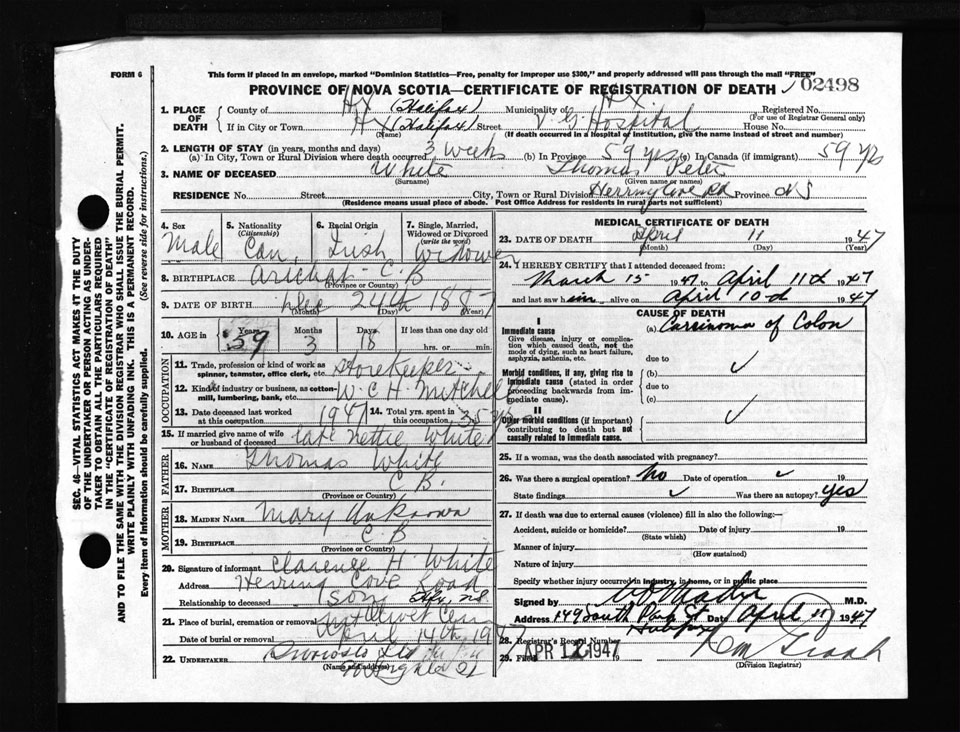 FORM 6
This form if placed in an envelope, marked "Dominion Statistics—Free, penalty for improper use $300," and properly addressed will pass through the mail "FREE"
PROVINCE OF NOVA SCOTIA—CERTIFICATE OF REGISTRATION OF DEATH 02498
1. PLACE OF DEATH
County of Hx (Halifax) Municipality of Hx. Registered No.
(For use of Registrar General only)
If in City or Town Hx (Halifax) Street V. G. Hospital House No.
(Name) (If death occurred in a hospital or institution, give the name instead of street and number)
2. LENGTH OF STAY (in years, months and days)
(a) In City, Town or Rural Division where death occurred 3 weeks (b) In Province 59 yrs (c) In Canada (if immigrant) 59 yrs
3. NAME OF DECEASED White Thomas Peter
(Surname) (Given name or names)
RESIDENCE No. Street City, Town or Rural Division Herring Cove Rd Province N S
(Residence means usual place of abode. Post Office Address for residents in rural parts not sufficient)
4. Sex Male
5. Nationality (Citizenship) Can,
6. Racial Origin Irish
7. Single, Married, Widowed or Divorced (write the word) Widower
8. BIRTHPLACE Arichat - C. B
(Province or Country)
9. DATE OF BIRTH Dec 24th 1887
(Month) (Day) (Year)
10. AGE in Years 59 Months 3 Days 18 If less than one day old hrs. or min.
OCCUPATION
11. Trade, profession or kind of work as spinner, teamster, office clerk, etc. Storekeeper
12. Kind of industry or business, as cotton-mill, lumbering, bank, etc. W. C. H. Mitchell
13. Date deceased last worked at this occupation 1947 14. Total yrs. spent in this occupation 35 yrs
15. If married give name of wife or husband of deceased late Nettie White
FATHER
16. NAME Thomas White
17. BIRTHPLACE C B.
(Province or Country)
MOTHER
18. MAIDEN NAME Mary Unknown
19. BIRTHPLACE C B
(Province or Country)
20. Signature of informant Clarence H White
Address Herring Cove Road
Relationship to deceased (son) N.S
21. Place of burial, cremation or removal Mt Olivet Cem
Date of burial or removal April 14th 1947
22. UNDERTAKER
(Name and address)
MEDICAL CERTIFICATE OF DEATH
23. DATE OF DEATH April 11 1947
(Month) (Day)
24. I HEREBY CERTIFY that I attended deceased from:
March 15 1947 to April 11th 1947
and last saw him alive on April 10th 1947
CAUSE OF DEATH
I
Immediate cause (a) Carcinoma of Colon
Give disease, injury or complication which caused death, not the mode of dying, such as heart failure, asphyxia, asthenia, etc.
due to
Morbid conditions, if any, giving rise to immediate cause (stated in order proceeding backwards from immediate cause).
(b)
due to
(c)
II
Other morbid conditions (if important) contributing to death but not causally related to immediate cause.
25. If a woman, was the death associated with pregnancy?
26. Was there a surgical operation? No Date of operation 19
State findings Was there an autopsy? Yes
27. If death was due to external causes (violence) fill in also the following:—
Accident, suicide or homicide? Date of injury 19
(State which)
Manner of injury
(How sustained)
Nature of injury
Specify whether injury occurred in industry, in home, or in public place
Signed by M.D.
Address 149 South Park St Halifax Date April 11 1947
28. Registrar's Record Number
29. Filed APR 12 1947 19
(Division Registrar)
SEC. 46—VITAL STATISTICS ACT MAKES IT THE DUTY
OF THE UNDERTAKER OR PERSON ACTING AS UNDER-
TAKER TO OBTAIN ALL THE PARTICULARS REQUIRED
IN THE "CERTIFICATE OF REGISTRATION OF DEATH"
AND TO FILE THE SAME WITH THE DIVISION REGISTRAR WHO SHALL ISSUE THE BURIAL PERMIT.
WRITE PLAINLY WITH UNFADING INK. THIS IS A PERMANENT RECORD.
Every item of information should be carefully supplied. (See reverse side for instructions.)